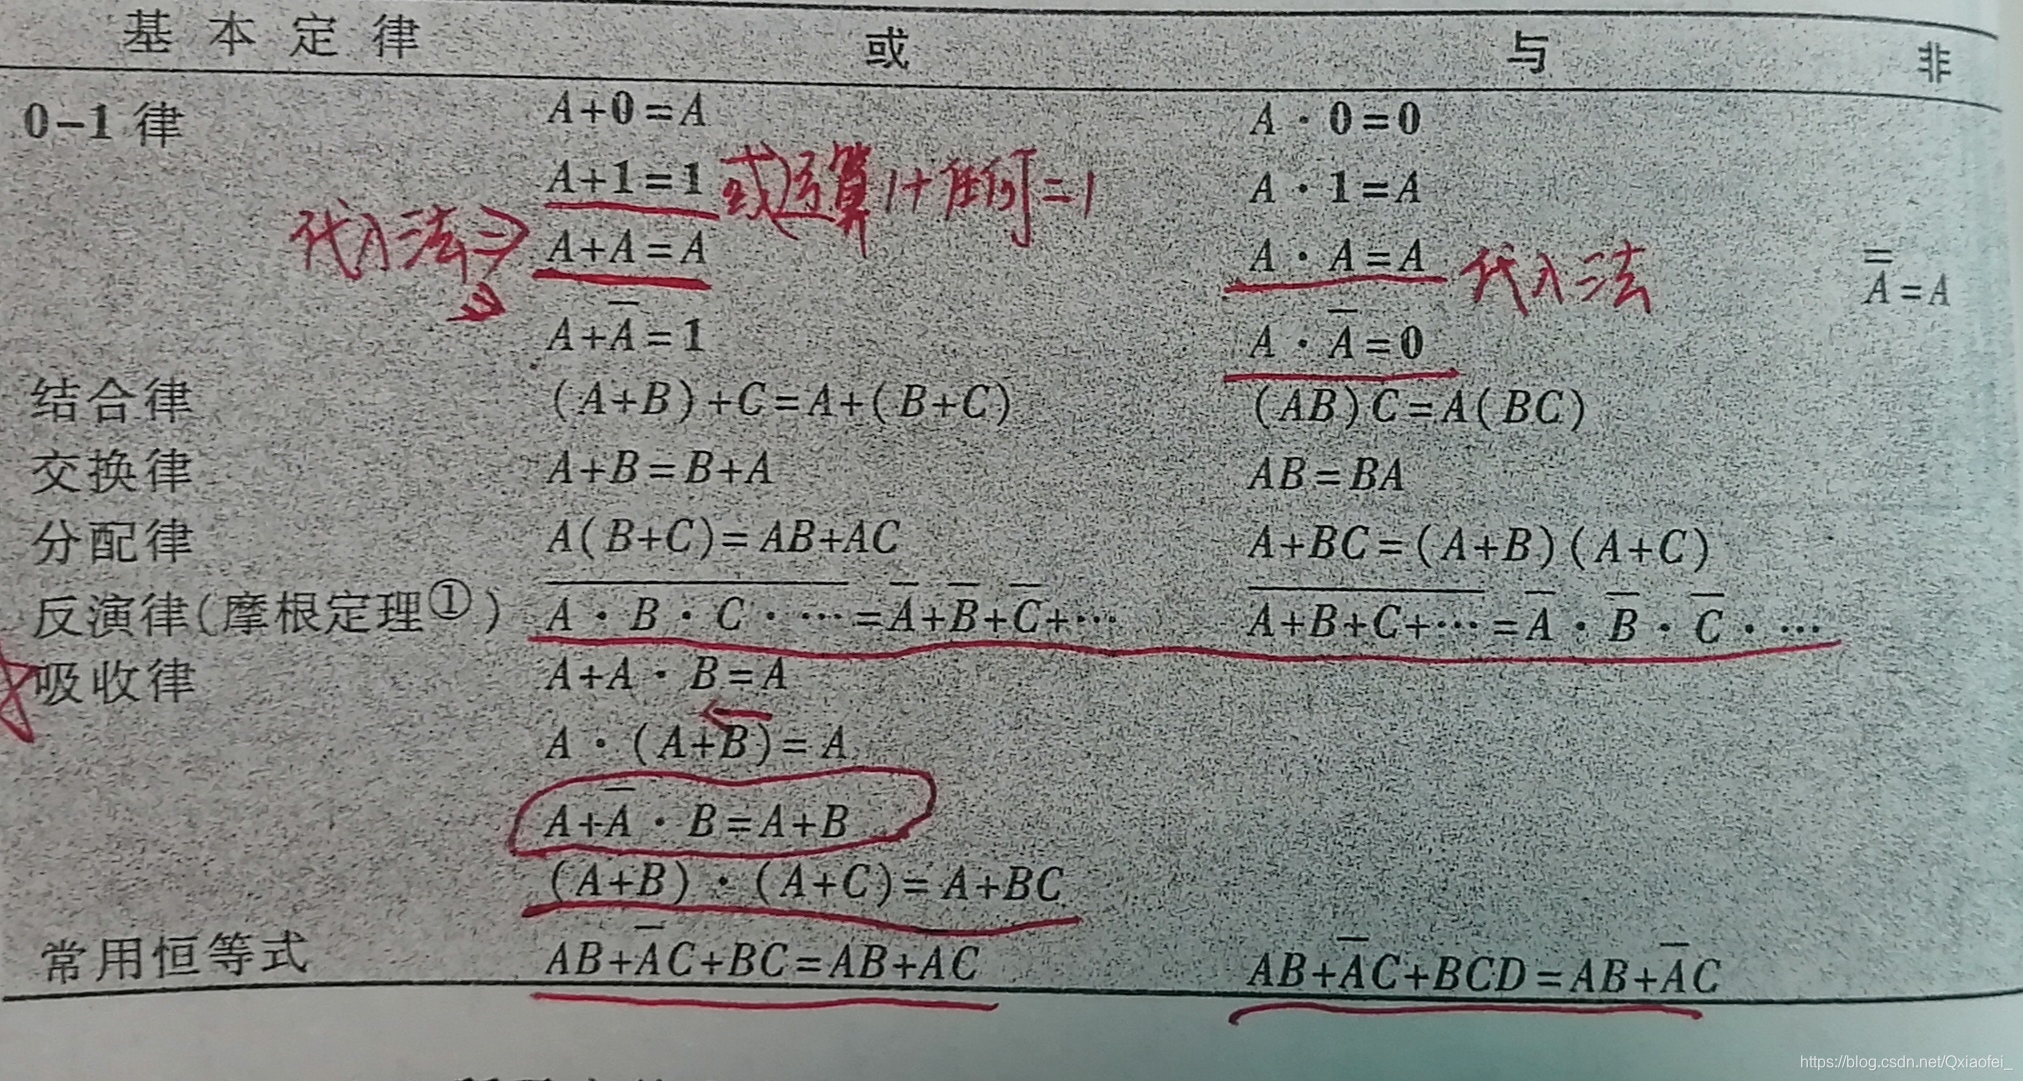 基本定律 或 与 非
0-1 律 A+0=A A·0=0
A+1=1 或运算 1+任何=1 A·1=A
代入法⇒ A+A=A A·A=A 代入法 A̿=A
⇒ A+A̅=1 A·A̅=0
结合律 (A+B)+C=A+(B+C) (AB)C=A(BC)
交换律 A+B=B+A AB=BA
分配律 A(B+C)=AB+AC A+BC=(A+B)(A+C)
反演律(摩根定理①) \overline{A·B·C·…}=A̅+B̅+C̅+… \overline{A+B+C+…}=A̅·B̅·C̅·…
吸收律 A+A·B=A
A·(A+B)=A
A+A̅·B=A+B
(A+B)·(A+C)=A+BC
常用恒等式 AB+A̅C+BC=AB+AC AB+A̅C+BCD=AB+A̅C
https://blog.csdn.net/Qxiaofei_